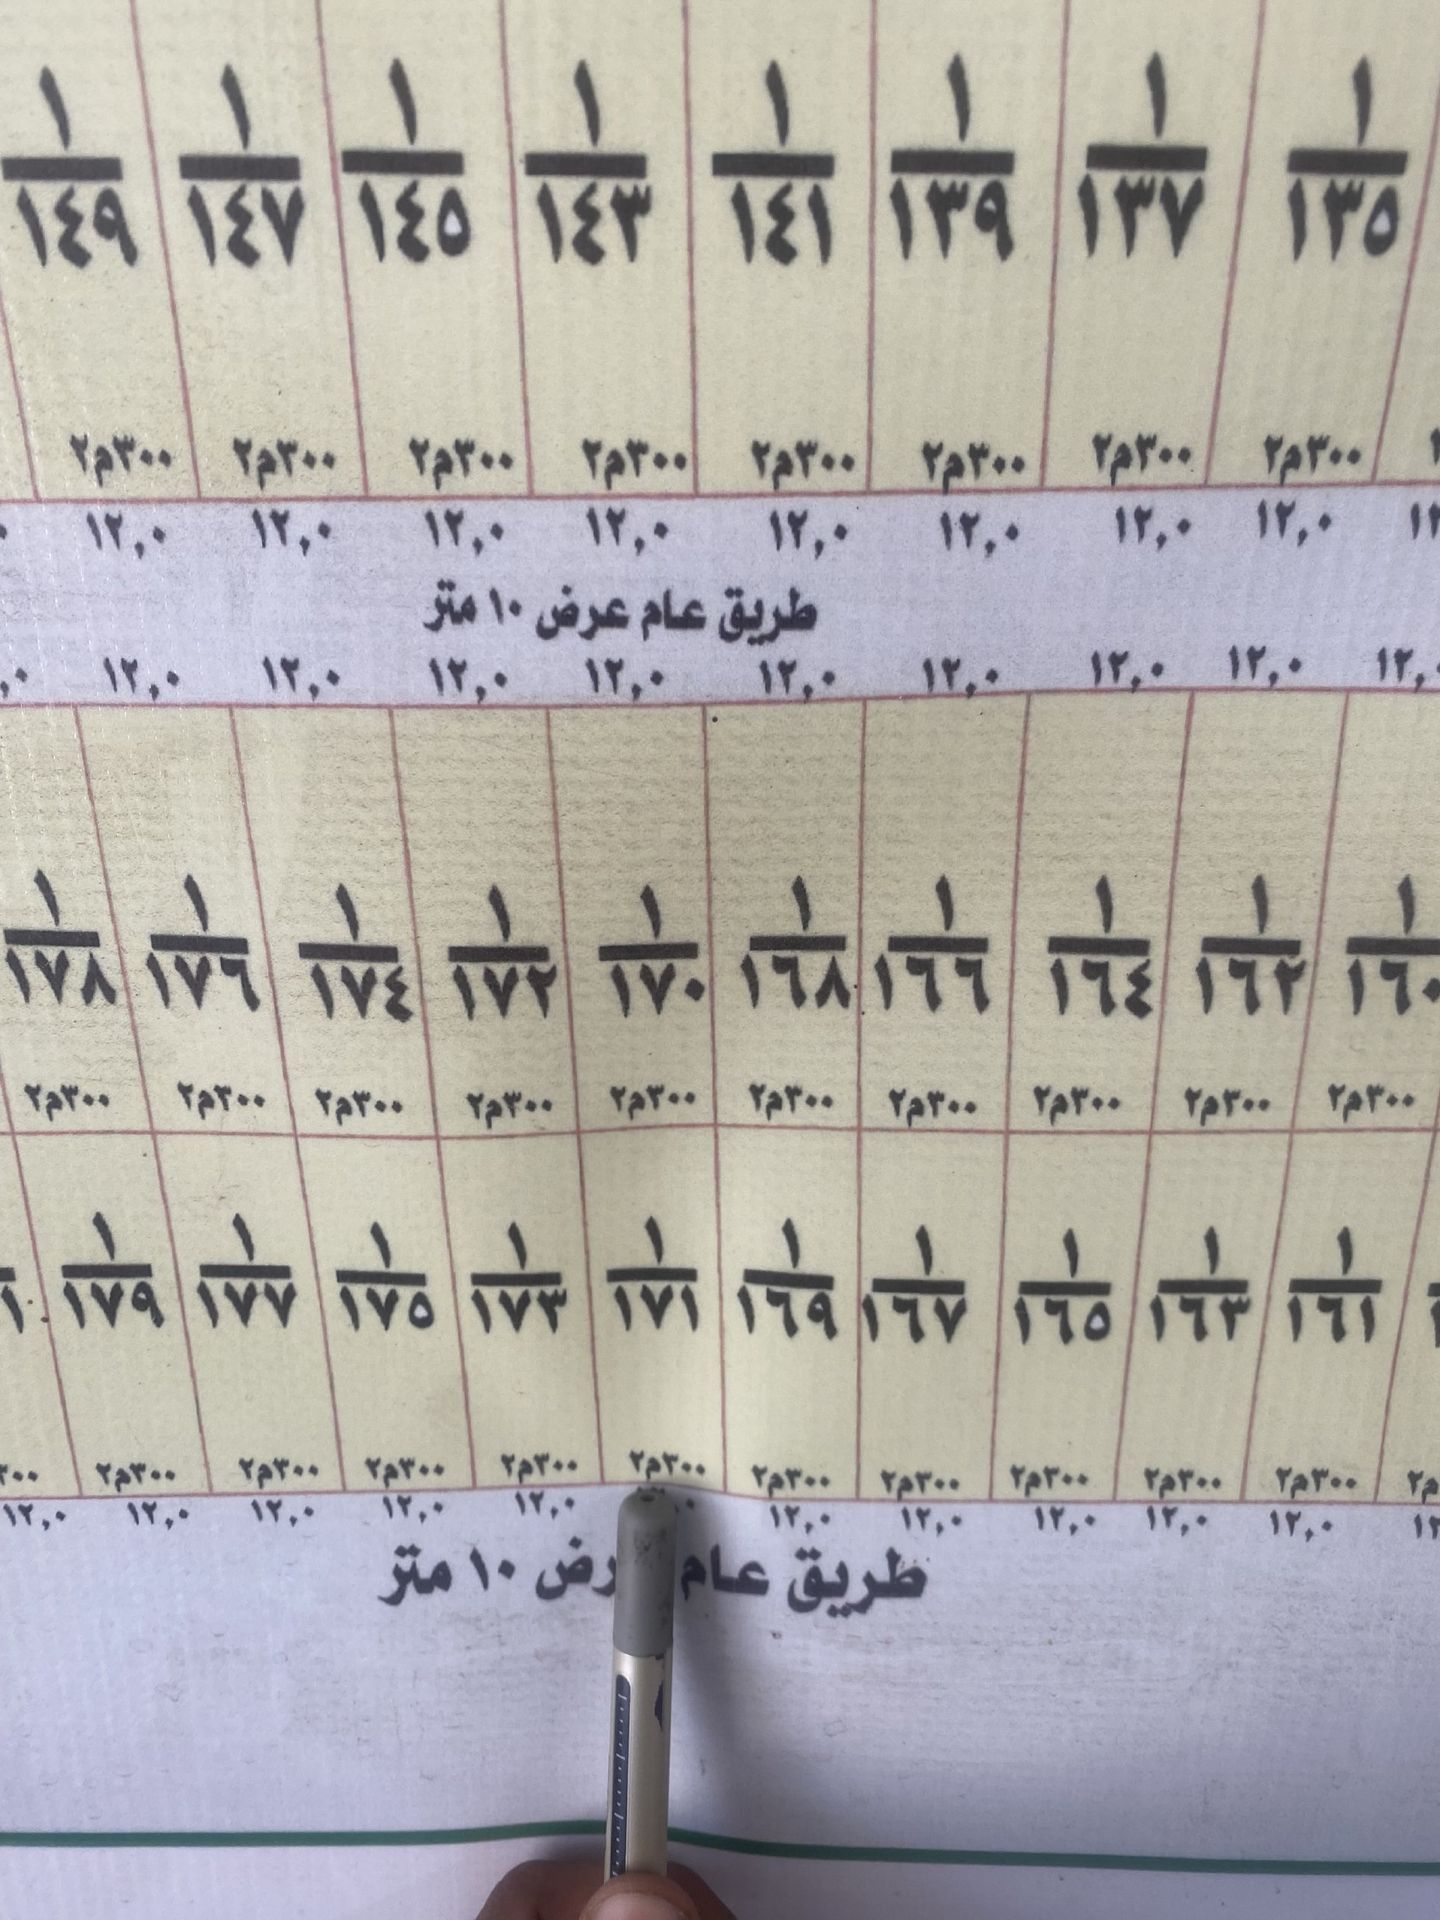 ١ ١ ١ ١ ١ ١ ١ ١
١٤٩ ١٤٧ ١٤٥ ١٤٣ ١٤١ ١٣٩ ١٣٧ ١٣٥
٣٠٠م٢ ٣٠٠م٢ ٣٠٠م٢ ٣٠٠م٢ ٣٠٠م٢ ٣٠٠م٢ ٣٠٠م٢ ٣٠٠م٢
١٢,٠ ١٢,٠ ١٢,٠ ١٢,٠ ١٢,٠ ١٢,٠ ١٢,٠ ١٢,٠
طريق عام عرض ١٠ متر
١٢,٠ ١٢,٠ ١٢,٠ ١٢,٠ ١٢,٠ ١٢,٠ ١٢,٠ ١٢,٠ ١٢,٠
١ ١ ١ ١ ١ ١ ١ ١ ١ ١
١٧٨ ١٧٦ ١٧٤ ١٧٢ ١٧٠ ١٦٨ ١٦٦ ١٦٤ ١٦٢ ١٦٠
٣٠٠م٢ ٣٠٠م٢ ٣٠٠م٢ ٣٠٠م٢ ٣٠٠م٢ ٣٠٠م٢ ٣٠٠م٢ ٣٠٠م٢ ٣٠٠م٢ ٣٠٠م٢
١ ١ ١ ١ ١ ١ ١ ١ ١ ١
١٧٩ ١٧٧ ١٧٥ ١٧٣ ١٧١ ١٦٩ ١٦٧ ١٦٥ ١٦٣ ١٦١
٣٠٠م٢ ٣٠٠م٢ ٣٠٠م٢ ٣٠٠م٢ ٣٠٠م٢ ٣٠٠م٢ ٣٠٠م٢ ٣٠٠م٢ ٣٠٠م٢ ٣٠٠م٢
١٢,٠ ١٢,٠ ١٢,٠ ١٢,٠ ١٢,٠ ١٢,٠ ١٢,٠ ١٢,٠ ١٢,٠ ١٢,٠
طريق عام رض ١٠ متر